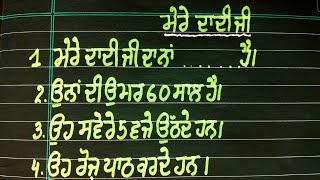 ਮੇਰੇ ਦਾਦੀ ਜੀ
1 ਮੇਰੇ ਦਾਦੀ ਜੀ ਦਾ ਨਾਂ ...... ਹੈ।
2. ਉਨਾਂ ਦੀ ਉਮਰ 60 ਸਾਲ ਹੈ।
3. ਉਹ ਸਵੇਰੇ 5 ਵਜੇ ਉੱਠਦੇ ਹਨ।
4. ਉਹ ਰੋਜ਼ ਪਾਠ ਕਰਦੇ ਹਨ।